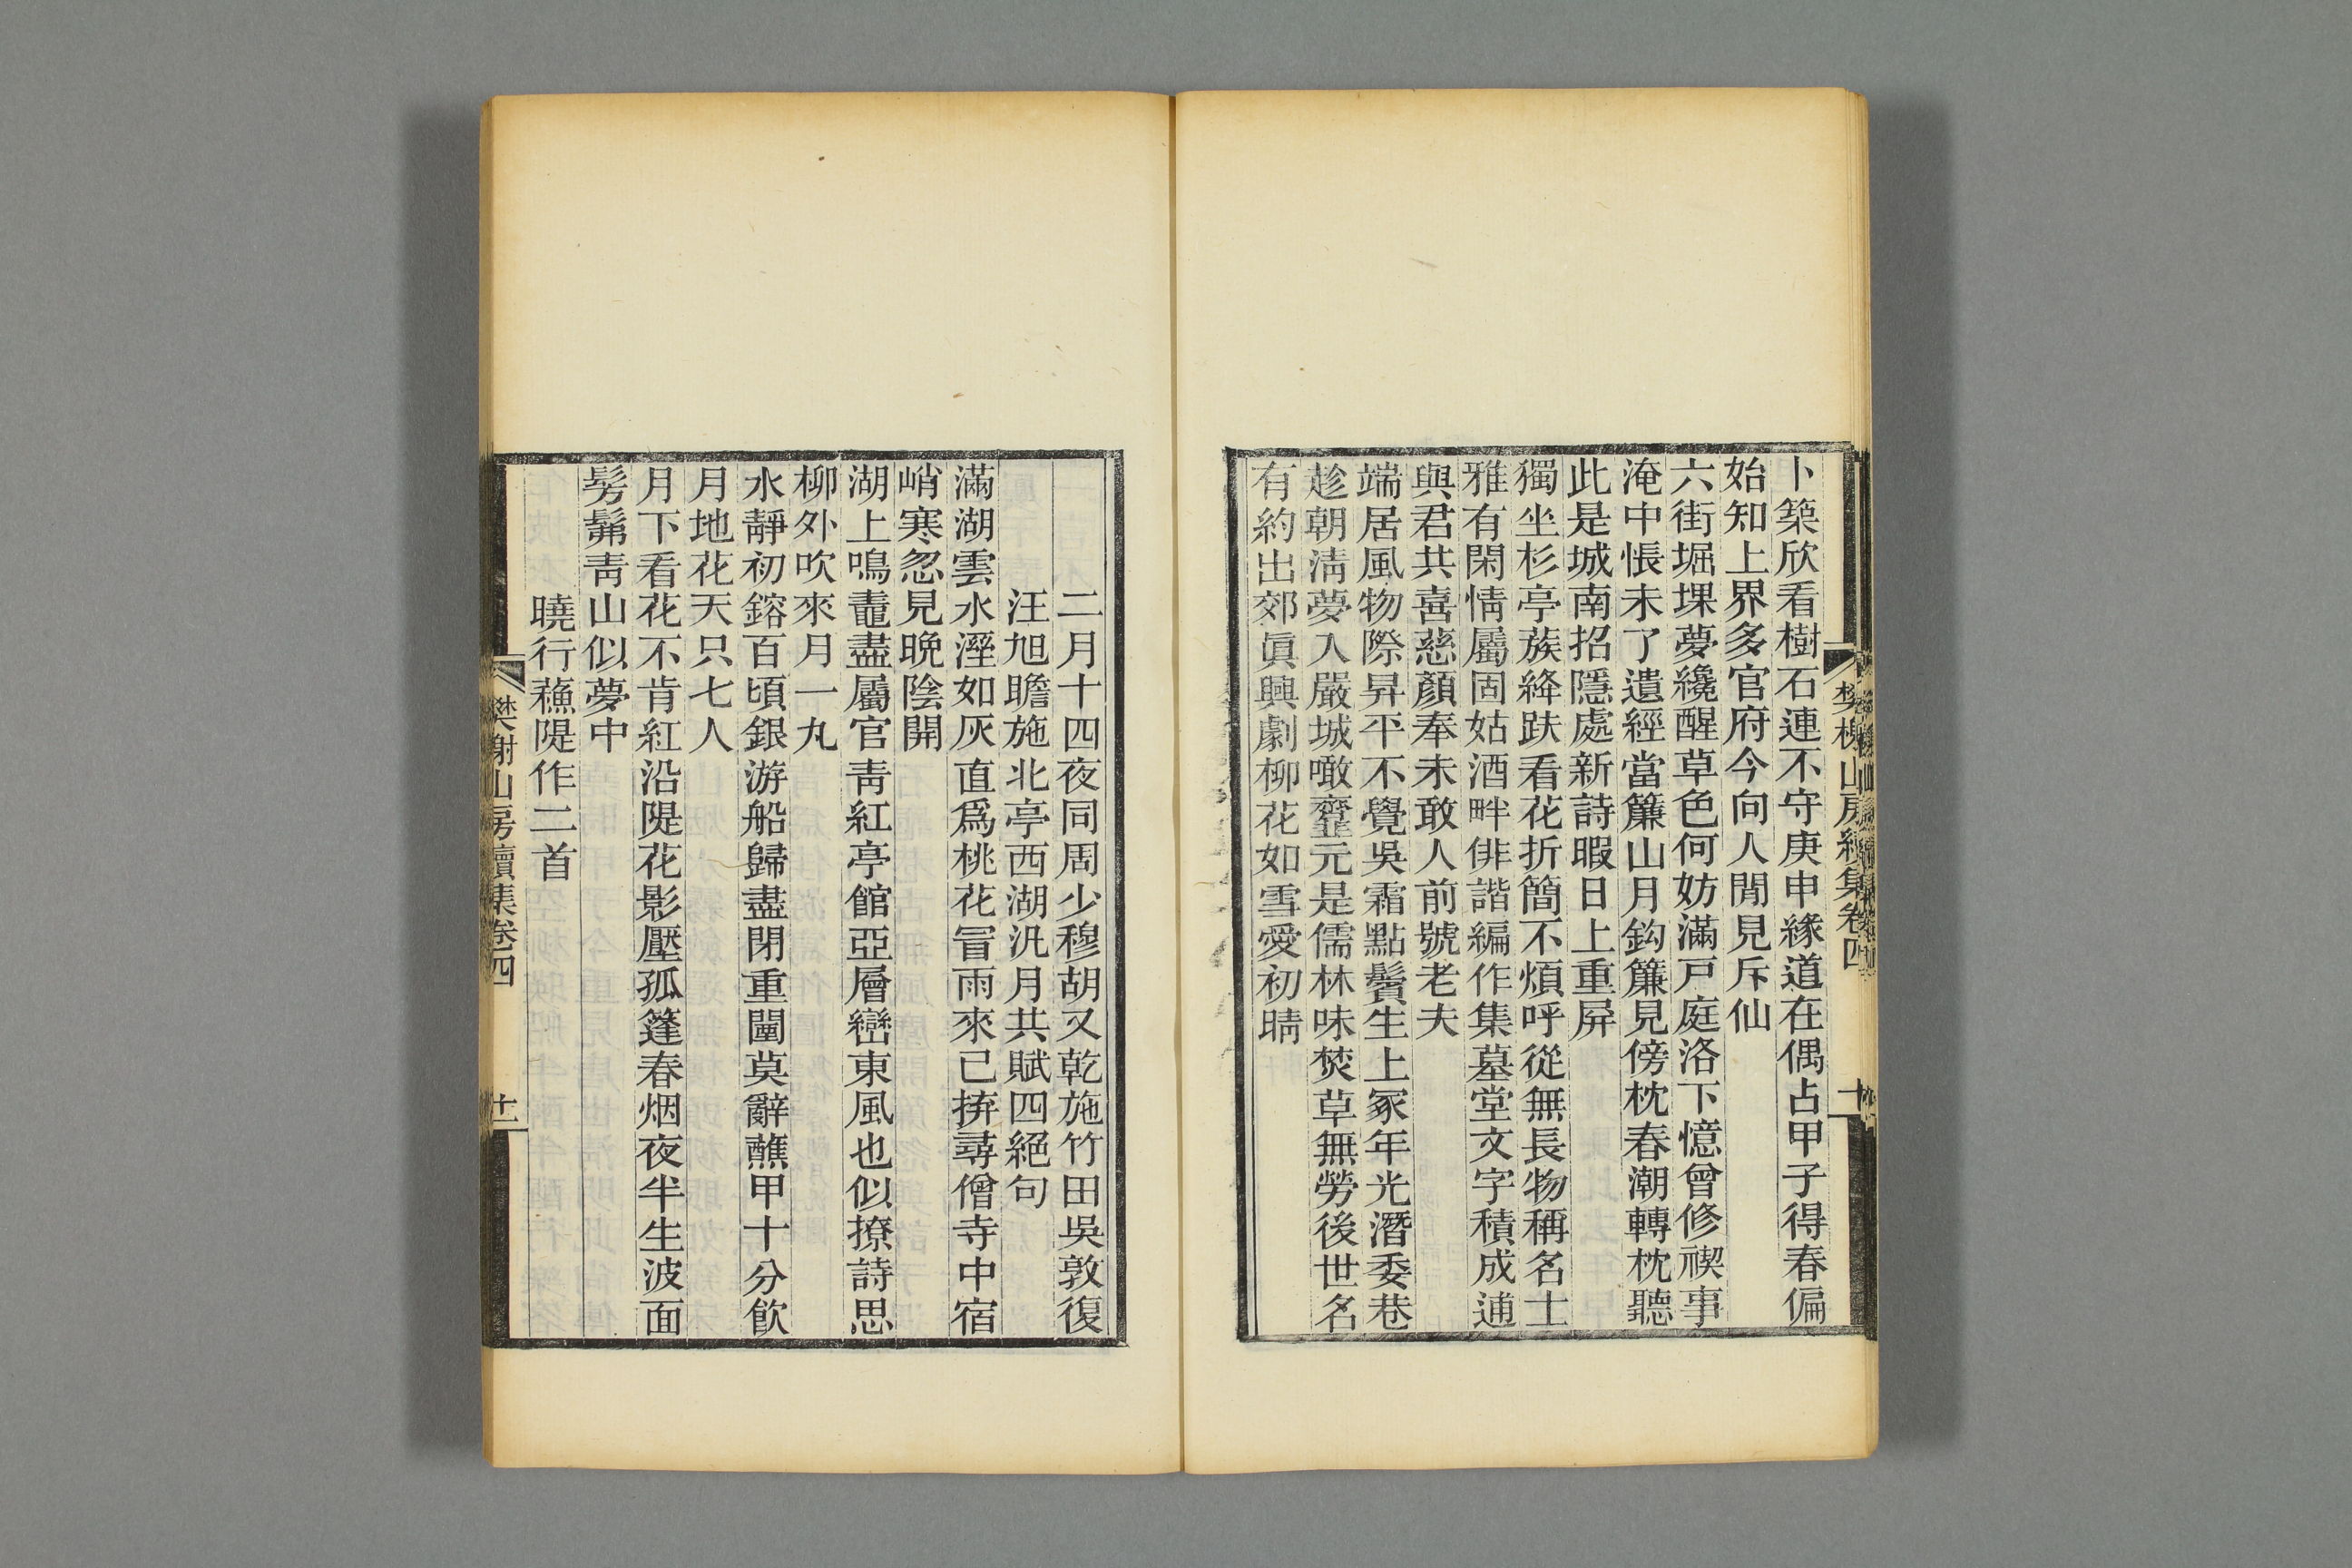 卜築欣看樹石連不守庚申緣道在偶占甲子得春偏
始知上界多官府今向人閒見斥仙
六街堀堁夢纔醒草色何妨滿戸庭洛下憶曾修禊事
淹中悵未了遺經當簾山月鈎簾見傍枕春潮轉枕聽
此是城南招隱處新詩暇日上重屏
獨坐杉亭蔟絳趺看花折簡不煩呼從無長物稱名士
雅有閑情屬固姑酒畔俳諧編作集墓堂文字積成逋
與君共喜慈顏奉未敢人前號老夫
端居風物際昇平不覺吳霜點鬢生上冢年光潛委巷
趁朝淸夢入嚴城噉虀元是儒林味焚草無勞後世名
有約出郊眞興劇柳花如雪愛初晴
樊榭山房續集卷四
二月十四夜同周少穆胡又乾施竹田吳敦復
汪旭瞻施北亭西湖汎月共賦四絕句
滿湖雲水溼如灰直爲桃花冒雨來已拚尋僧寺中宿
峭寒忽見晩陰開
湖上鳴鼃盡屬官靑紅亭館亞層巒東風也似撩詩思
柳外吹來月一丸
水靜初鎔百頃銀游船歸盡閉重闉莫辭蘸甲十分飮
月地花天只七人
月下看花不肯紅沿隄花影壓孤篷春烟夜半生波面
髣髴靑山似夢中
曉行蘓隄作二首
樊榭山房續集卷四
十二